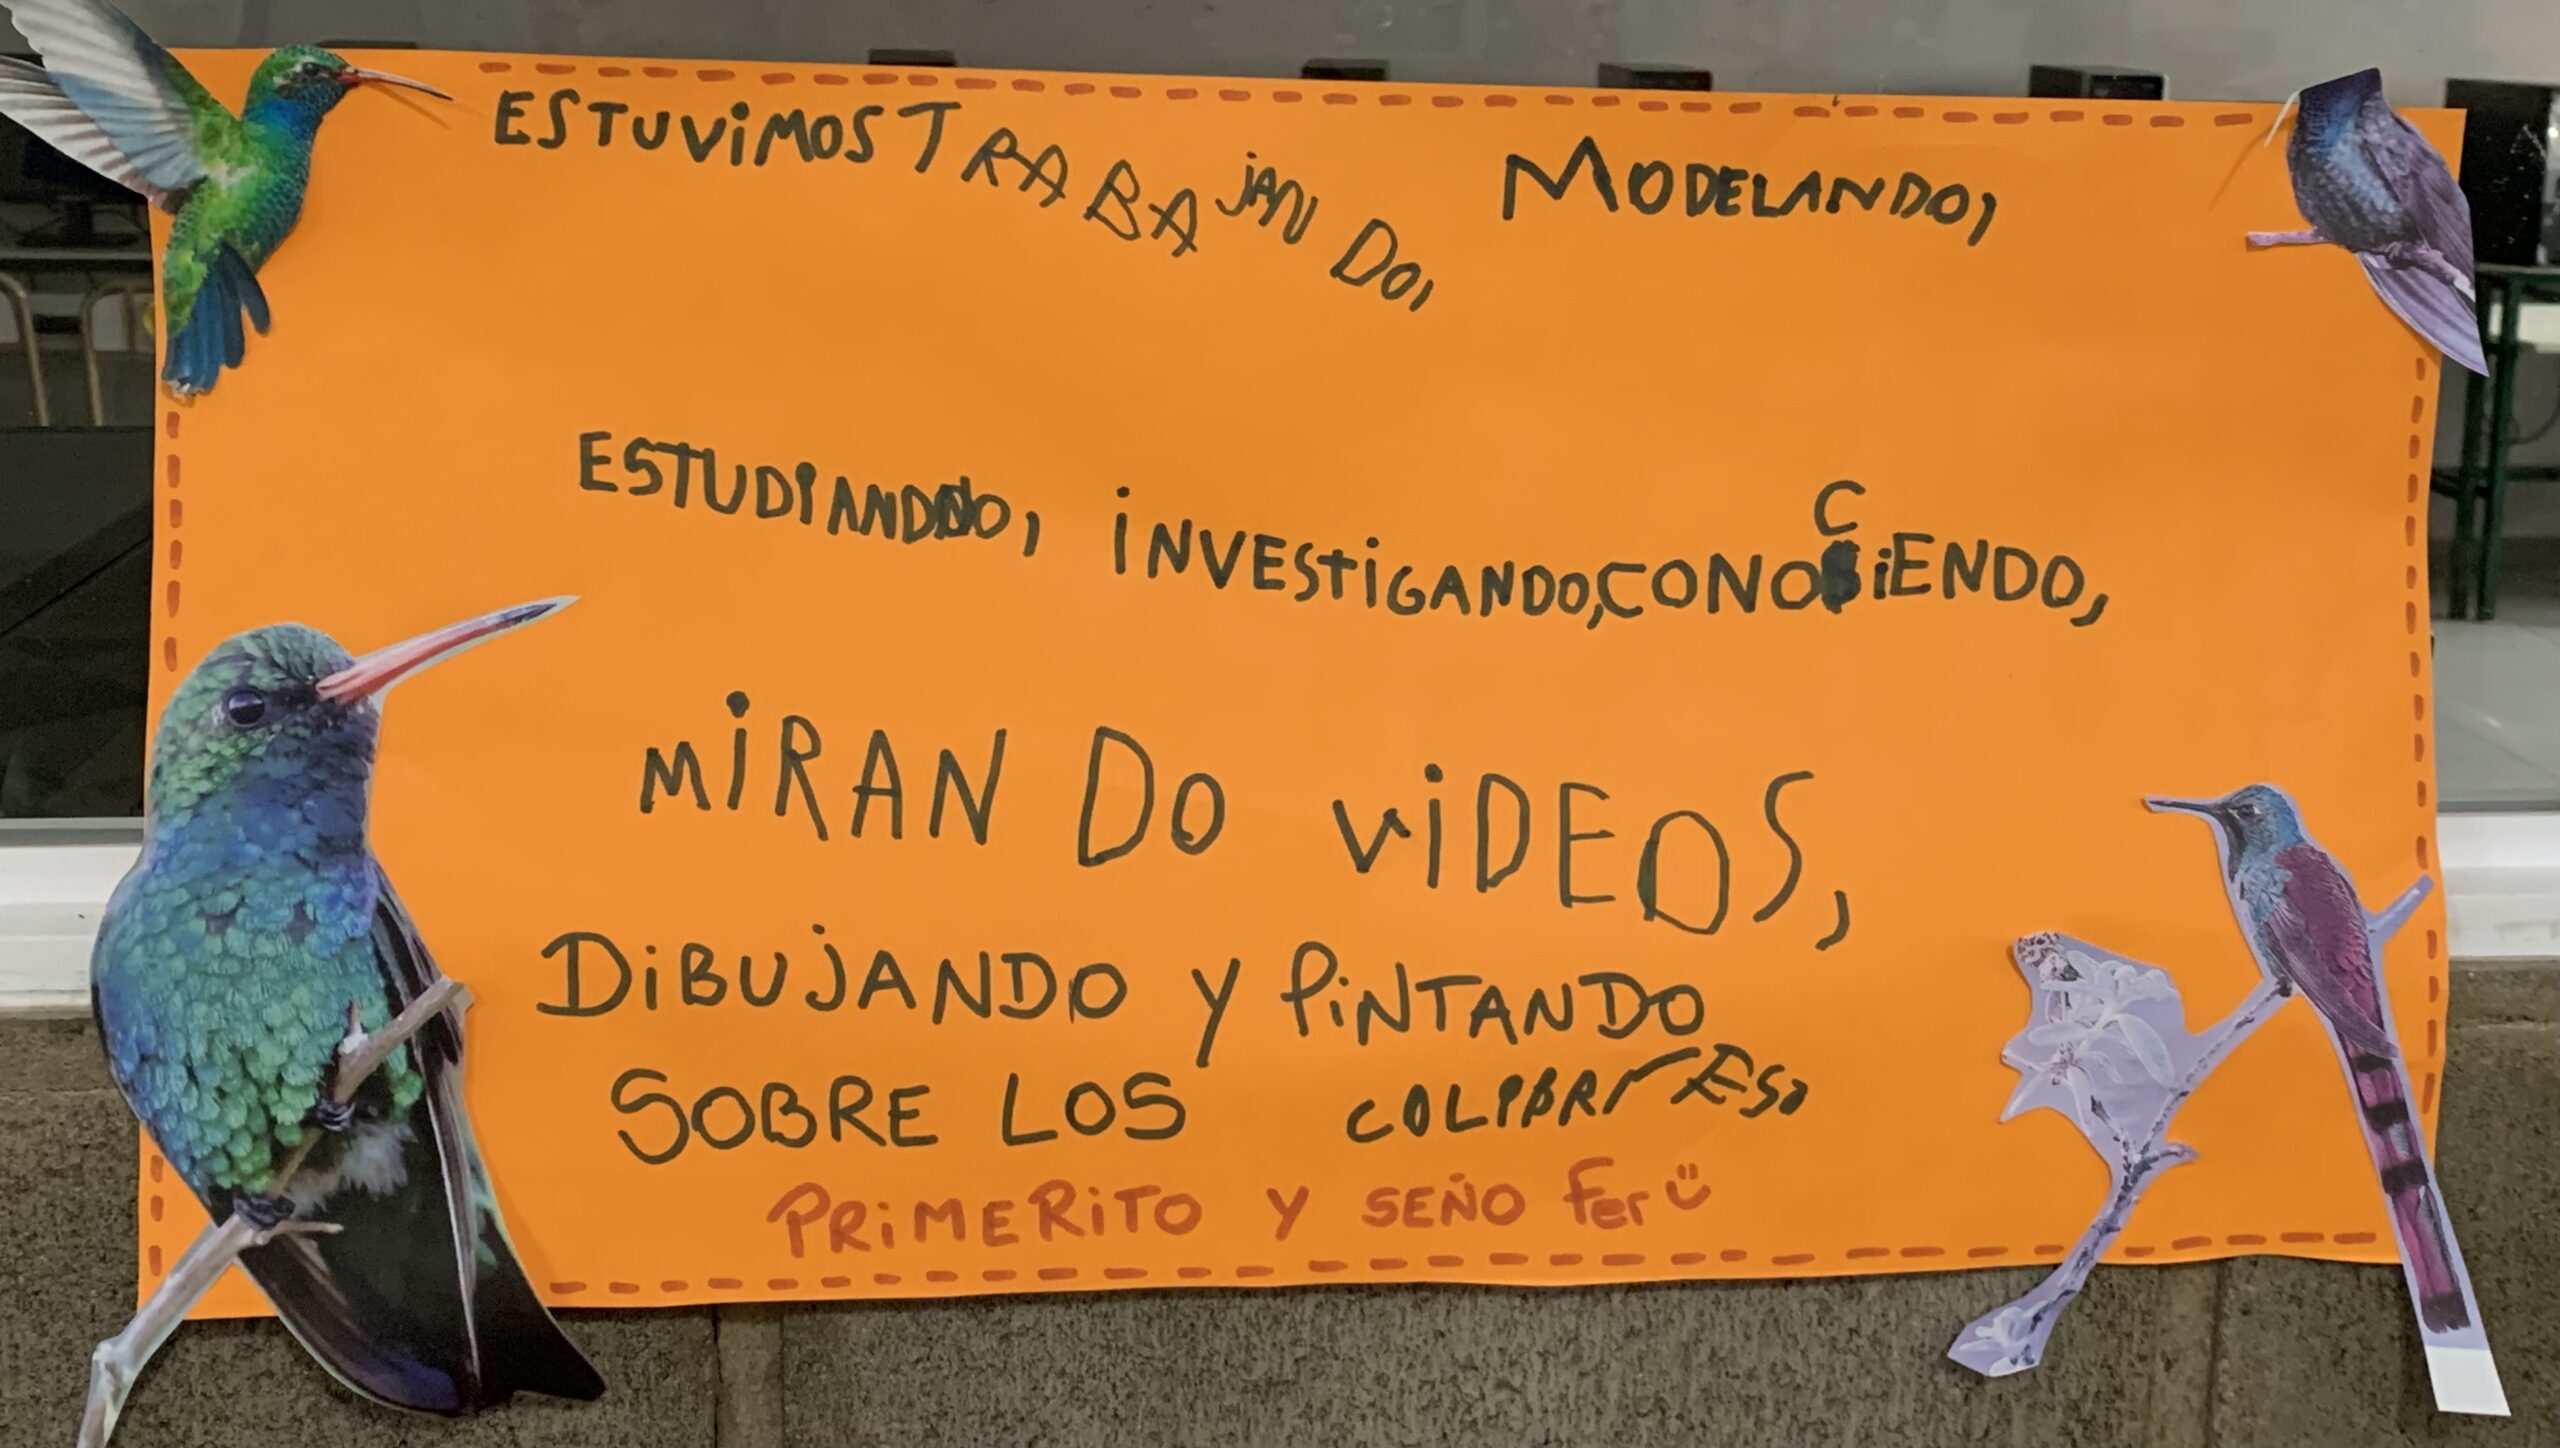 ESTUViMOS TRABAjANDO, MODELANDO,
ESTUDiANDO, iNVEStiGANDO, CONOCiENDO,
MiRANDO ViDEOS,
DiBUJANDO Y PiNTANDO
SOBRE LOS COLIBRrES.
PRiMERiTO Y SEÑO Fer